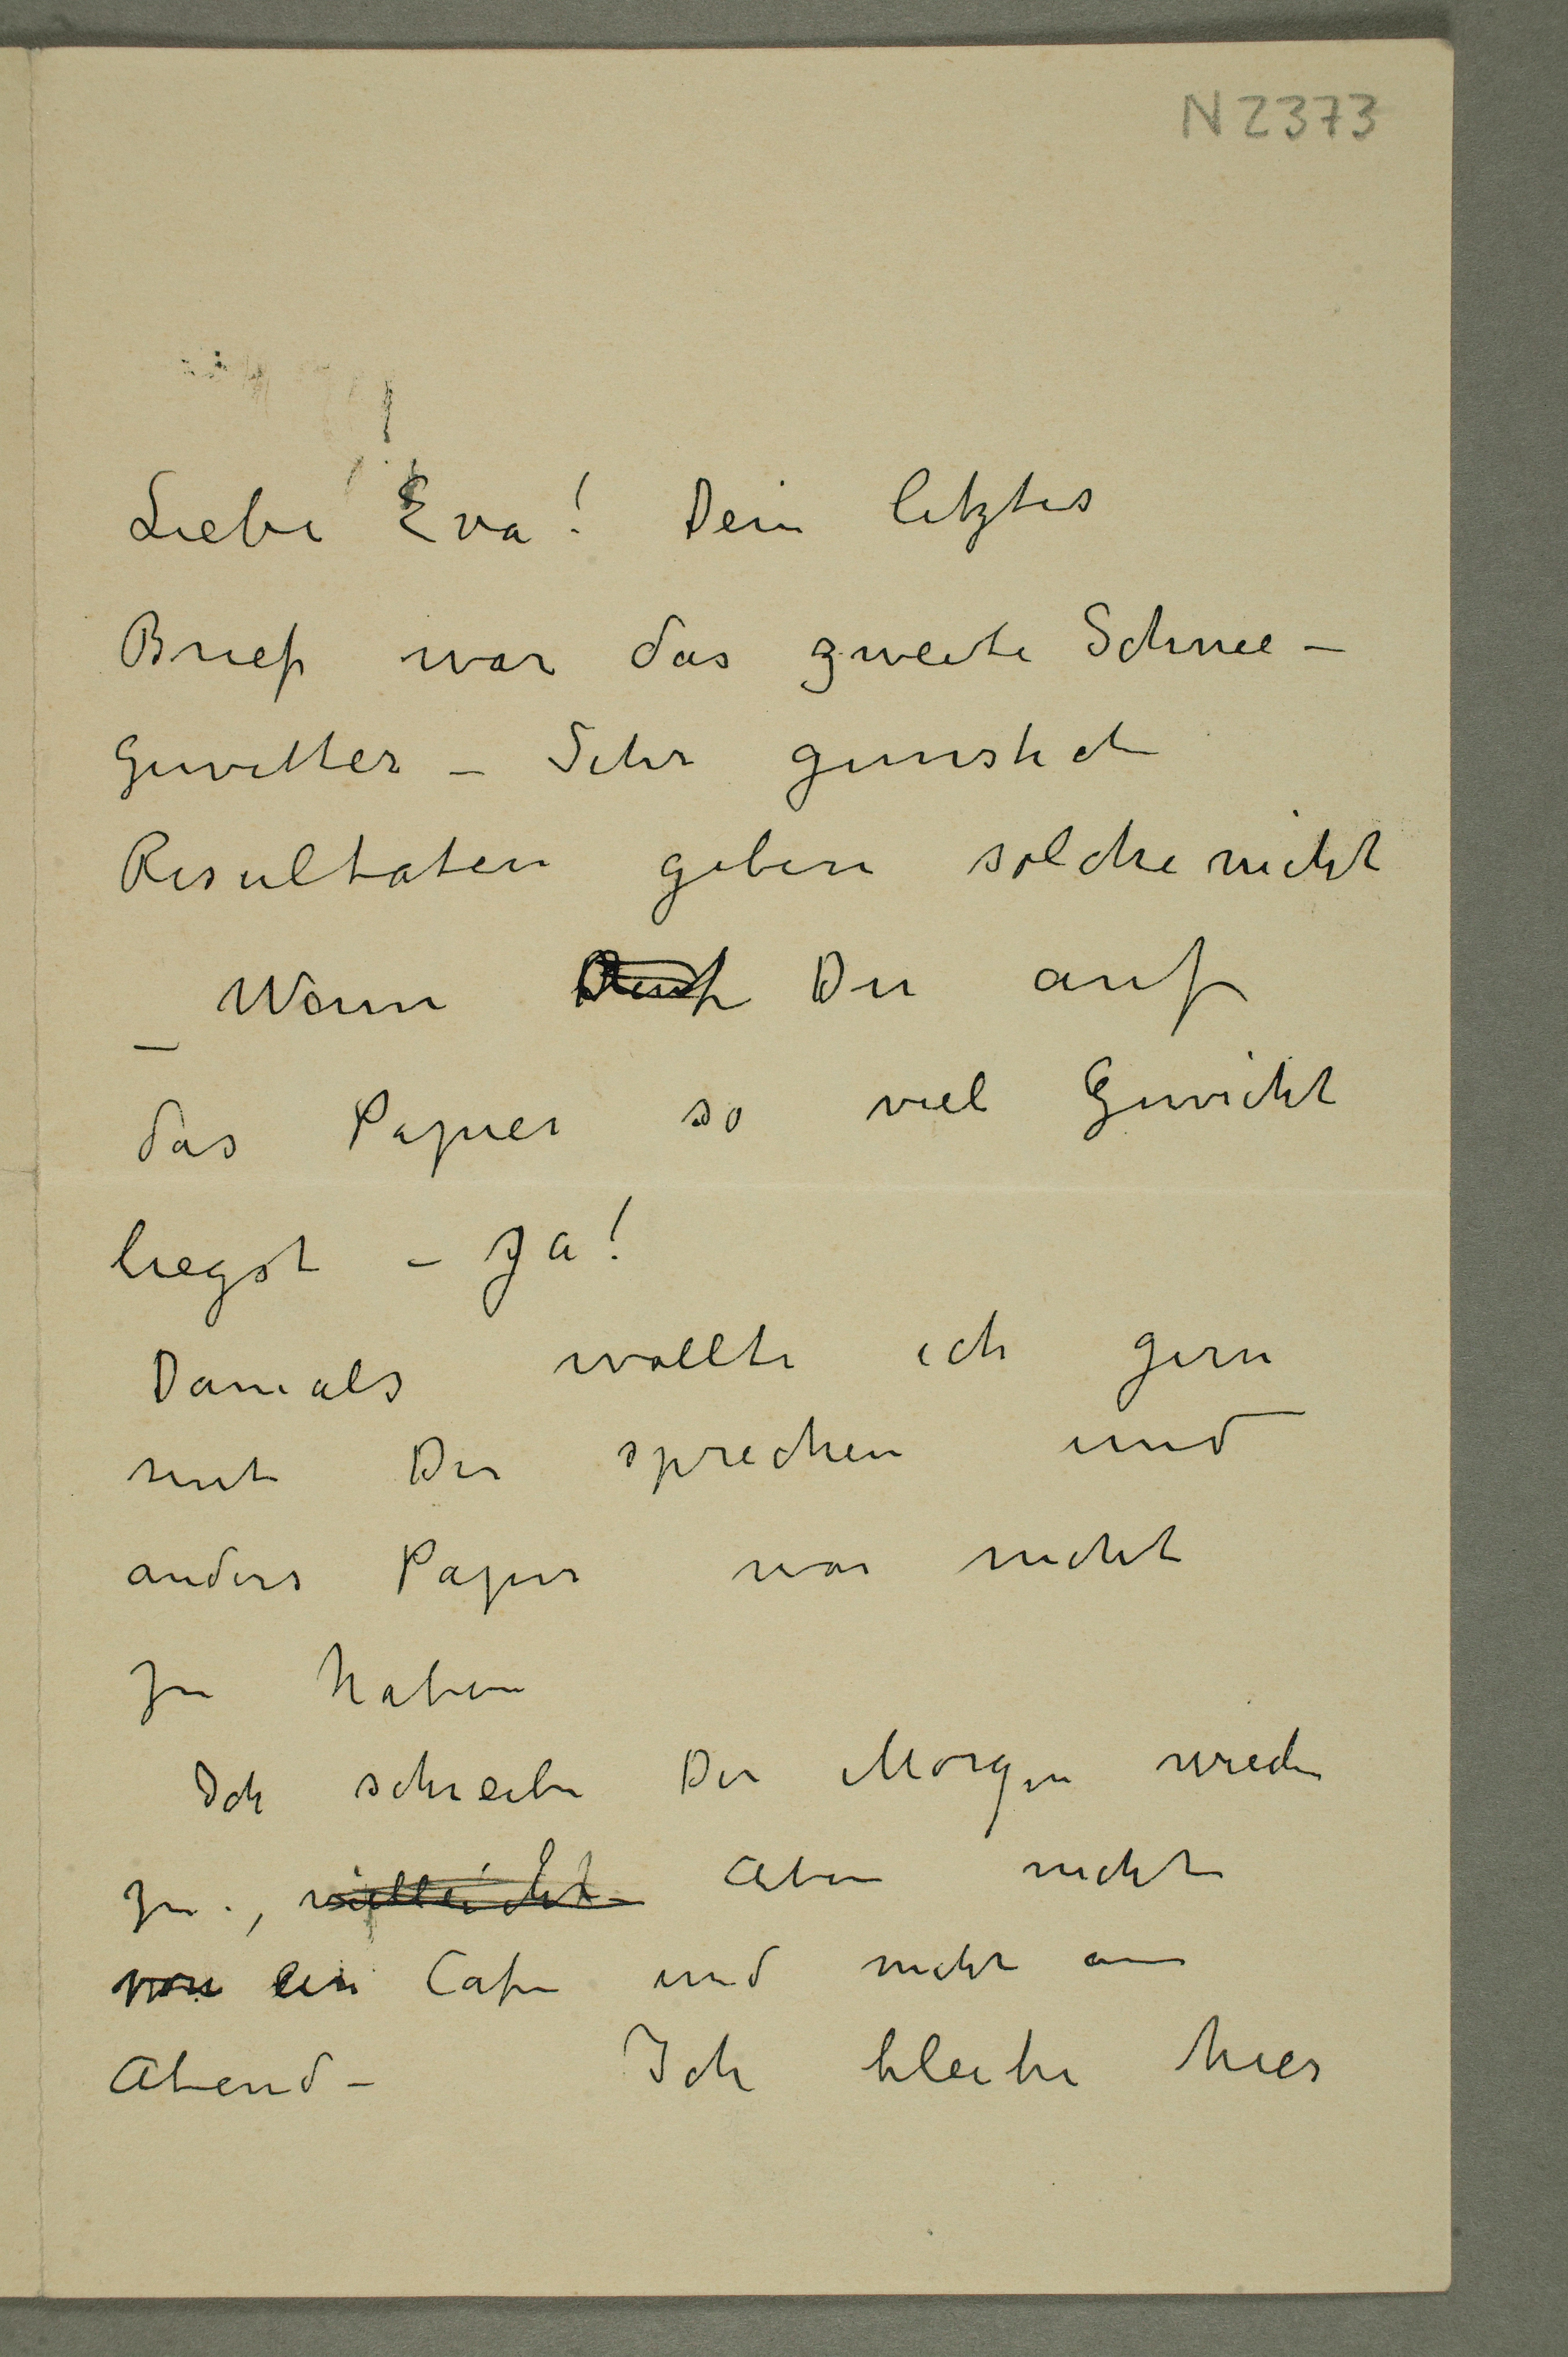 N 2373
Liebe Eva! Dein letztes
Brief war das zweite Schnee –
Gewitter – Sehr gunstich
Resultaten geben solche nicht
– Wenn Du auf
das Papier so viel Gewicht
liegst – Ja!
Damals wollte ich gern
mit Dir sprechen und
anders Papir war nicht
zu haben
Ich schreibe Dir Morgen wieder
zu., vielleicht aber nicht
von ein Cafe und nicht am
Abend – Ich bleibe hier